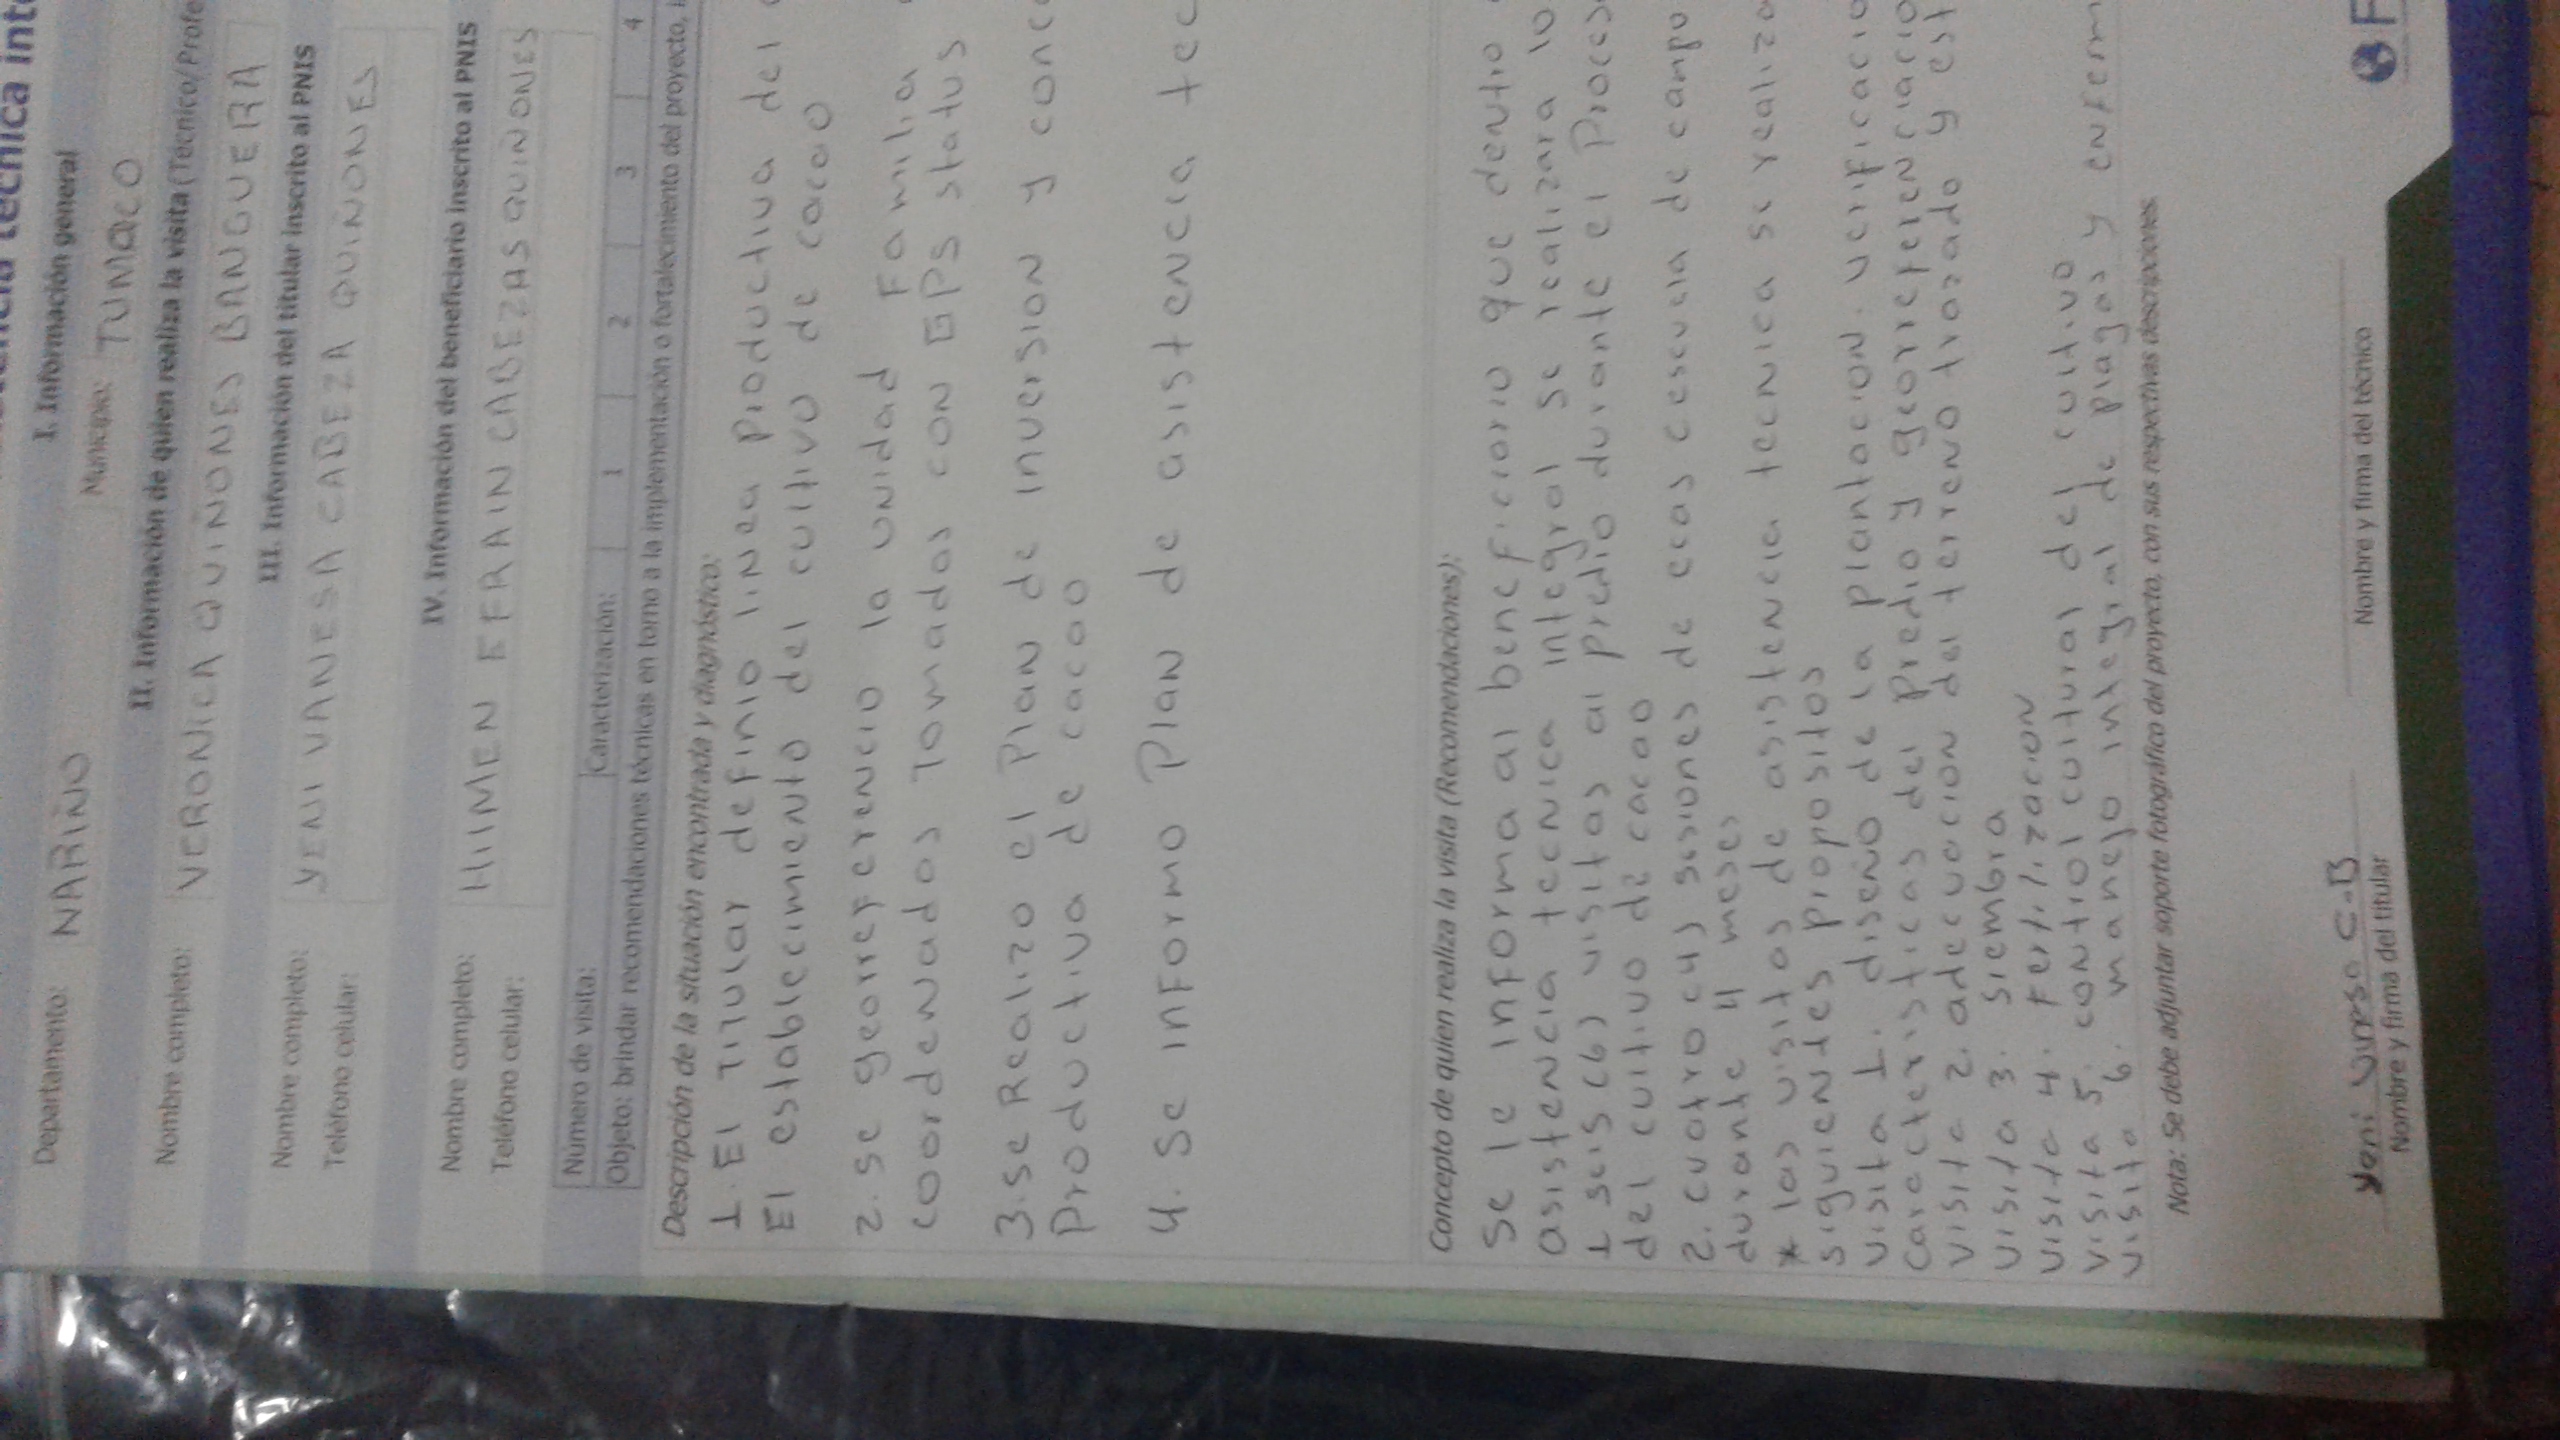 técnica int
I. Información general
Departamento: NARIÑO Municipio: TUMACO
II. Información de quien realiza la visita (Técnico/Profe
Nombre completo: VERONICA QUIÑONES BANGUERA
III. Información del titular inscrito al PNIS
Nombre completo: YENI VANESA CABEZA QUIÑONES
Teléfono celular:
IV. Información del beneficiario inscrito al PNIS
Nombre completo: HIIMEN EFRAIN CABEZAS QUIÑONES
Teléfono celular:
Número de visita: Caracterización: 1 2 3 4
Objeto: brindar recomendaciones técnicas en torno a la implementación o fortalecimiento del proyecto,
Descripción de la situación encontrada y diagnóstico:
1. El titular definio linea productiva del
El establecimiento del cultivo de cacao
2. se georreferencio la unidad Familia
coordenadas Tomadas con GPS status
3. se Realizo el Plan de inversion y conc
Productiva de cacao
4. Se informo Plan de asistencia tec
Concepto de quien realiza la visita (Recomendaciones):
Se le informa al beneficiario que dentro
asistencia tecnica integral se realizara lo
1 seis (6) visitas al predio durante el Proces
del cultivo de cacao
2. cuatro (4) sesiones de ecas escuela de campo
durante 4 meses
* las visitas de asistencia tecnica se realiza
siguiendes propositos
visita 1. diseño de la plantacion. verificacio
caracteristicas del Predio y georreferenciacio
visita 2. adecuacion del terreno trazado y est
visita 3. siembra
visita 4. Fertilizacion
visita 5. control cultural del cultivo
visita 6. manejo integral de plagas y enferm
Nota: Se debe adjuntar soporte fotográfico del proyecto, con sus respectivas descripciones.
Yeni C.B
Nombre y firma del titular Nombre y firma del técnico
F